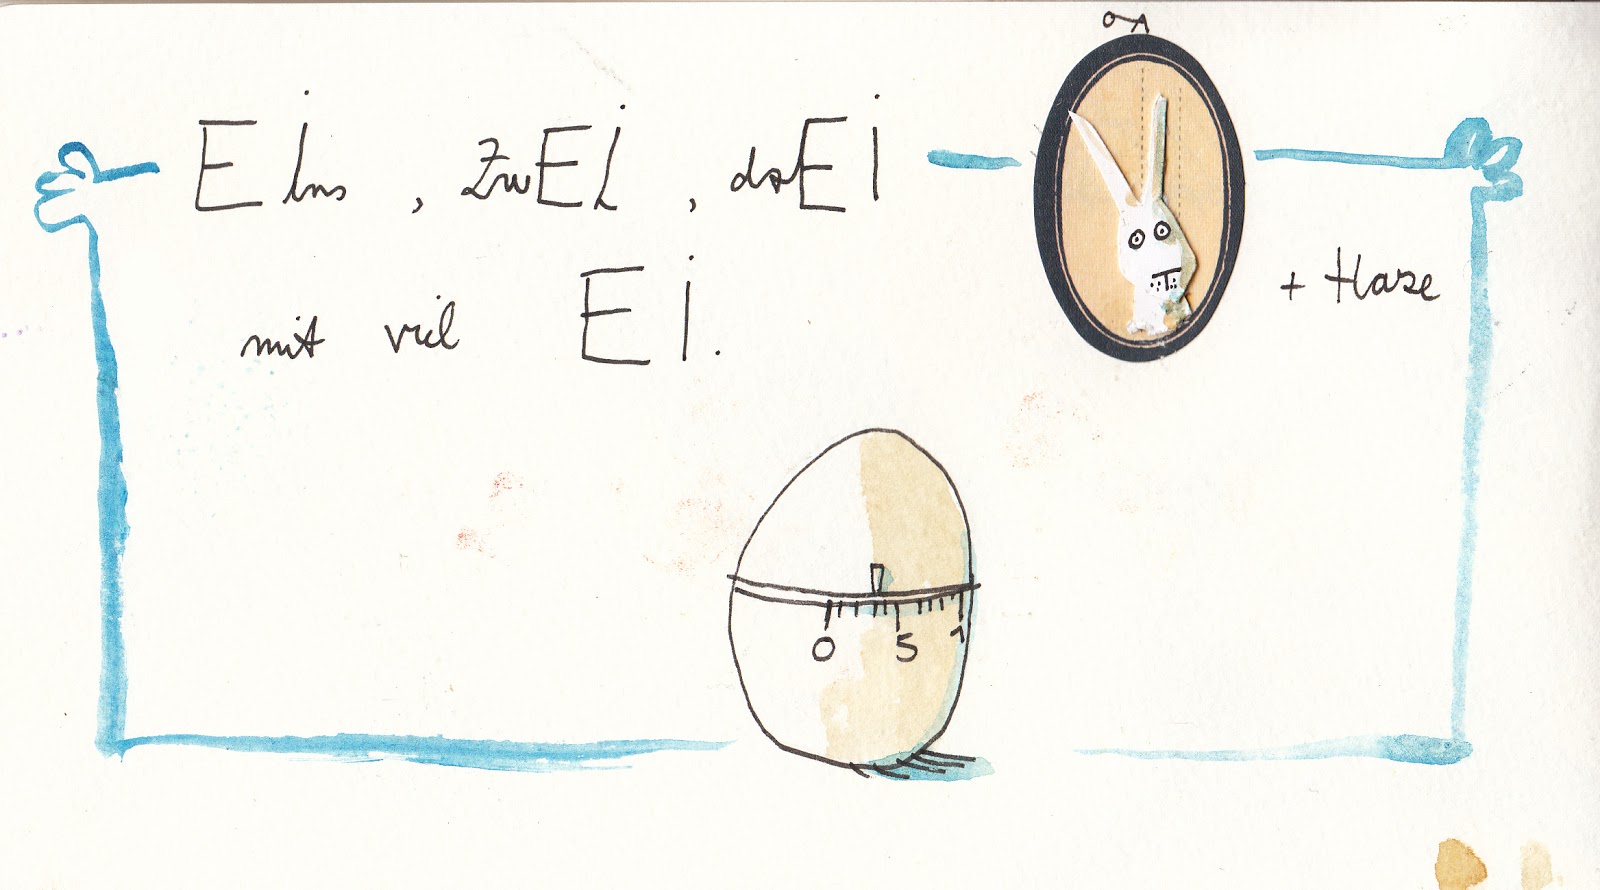 EIns, ZwEI, drEI
+ Hase
mit viel EI.
0 5 1